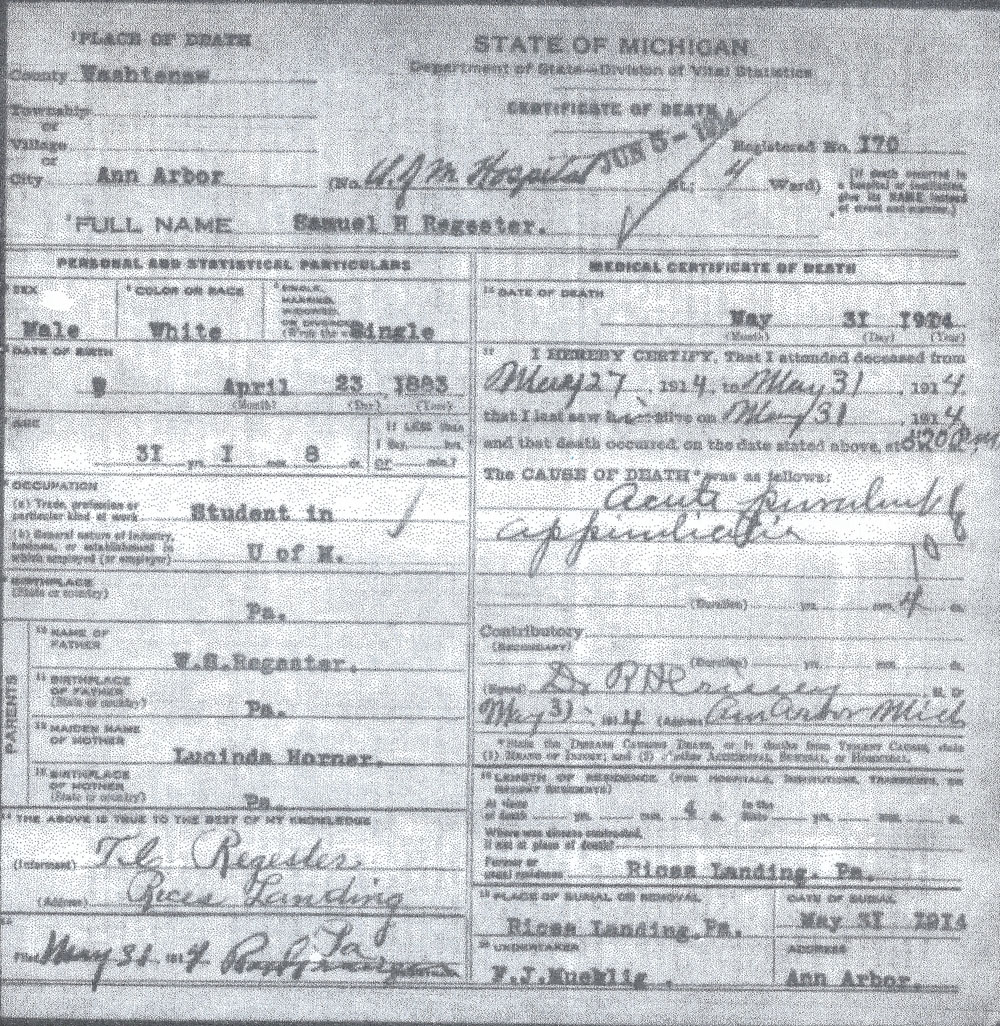 1 PLACE OF DEATH
County Washtenaw
Township
or
Village
or
City Ann Arbor
STATE OF MICHIGAN
Department of State—Division of Vital Statistics
CERTIFICATE OF DEATH
JUN 5 - 1914
Registered No. 170
(No. U of M Hospital St.; 4 Ward)
[If death occurred in
a hospital or institution,
give its NAME instead
of street and number.]
2 FULL NAME Samuel H Regester.
PERSONAL AND STATISTICAL PARTICULARS
3 SEX
Male
4 COLOR OR RACE
White
5 SINGLE,
MARRIED,
WIDOWED,
OR DIVORCED
(Write the word) Single
DATE OF BIRTH
April 23, 1883
(Month) (Day) (Year)
AGE
31 yrs. 1 mos. 8 ds.
If LESS than
1 day, hrs.
or min.?
OCCUPATION
(a) Trade, profession or
particular kind of work Student in
(b) General nature of industry,
business, or establishment in
which employed (or employer) U of M.
BIRTHPLACE
(State or country)
Pa.
PARENTS
10 NAME OF
FATHER
W.S.Regester.
11 BIRTHPLACE
OF FATHER
(State or country)
Pa.
12 MAIDEN NAME
OF MOTHER
Lucinda Horner.
13 BIRTHPLACE
OF MOTHER
(State or country)
Pa.
14 THE ABOVE IS TRUE TO THE BEST OF MY KNOWLEDGE
(Informant) Regester
(Address) Rices Landing
Pa
15
Filed May 31 1914
MEDICAL CERTIFICATE OF DEATH
16 DATE OF DEATH
May 31 1914
(Month) (Day) (Year)
17 I HEREBY CERTIFY, That I attended deceased from
May 27, 1914, to May 31, 1914
that I last saw h alive on May 31, 1914
and that death occurred, on the date stated above, at
The CAUSE OF DEATH* was as follows:
Acute purulent
appendicitis
10
(Duration) yrs. mos. 4 ds.
Contributory
(SECONDARY)
(Duration) yrs. mos. ds.
(Signed) Dr M. D.
May 31, 1914 (Address) Ann Arbor Mich
*State the DISEASE CAUSING DEATH, or in deaths from VIOLENT CAUSES, state
(1) MEANS OF INJURY; and (2) whether ACCIDENTAL, SUICIDAL, or HOMICIDAL.
18 LENGTH OF RESIDENCE (FOR HOSPITALS, INSTITUTIONS, TRANSIENTS, OR
RECENT RESIDENTS)
At place
of death yrs. mos. 4 ds. In the
State yrs. mos. ds.
Where was disease contracted,
if not at place of death?
Former or
usual residence Rices Landing. Pa.
19 PLACE OF BURIAL OR REMOVAL
Rices Landing Pa.
DATE OF BURIAL
May 31 1914
20 UNDERTAKER
F.J.Muehlig.
ADDRESS
Ann Arbor.